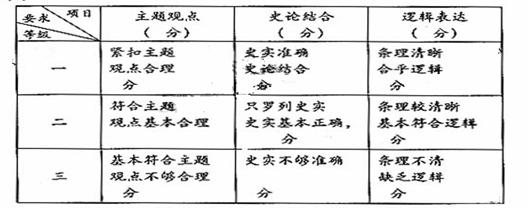 要求 项目 等级
主题观点
( 分)
史论结合
( 分)
逻辑表达
( 分)
一
紧扣主题
观点合理
分
史实准确
史论结合
分
条理清晰
合乎逻辑
分
二
符合主题
观点基本合理
分
只罗列史实
史实基本正确,
分
条理较清晰
基本符合逻辑
分
三
基本符合主题
观点不够合理
分
史实不够准确
分
条理不清
缺乏逻辑
分